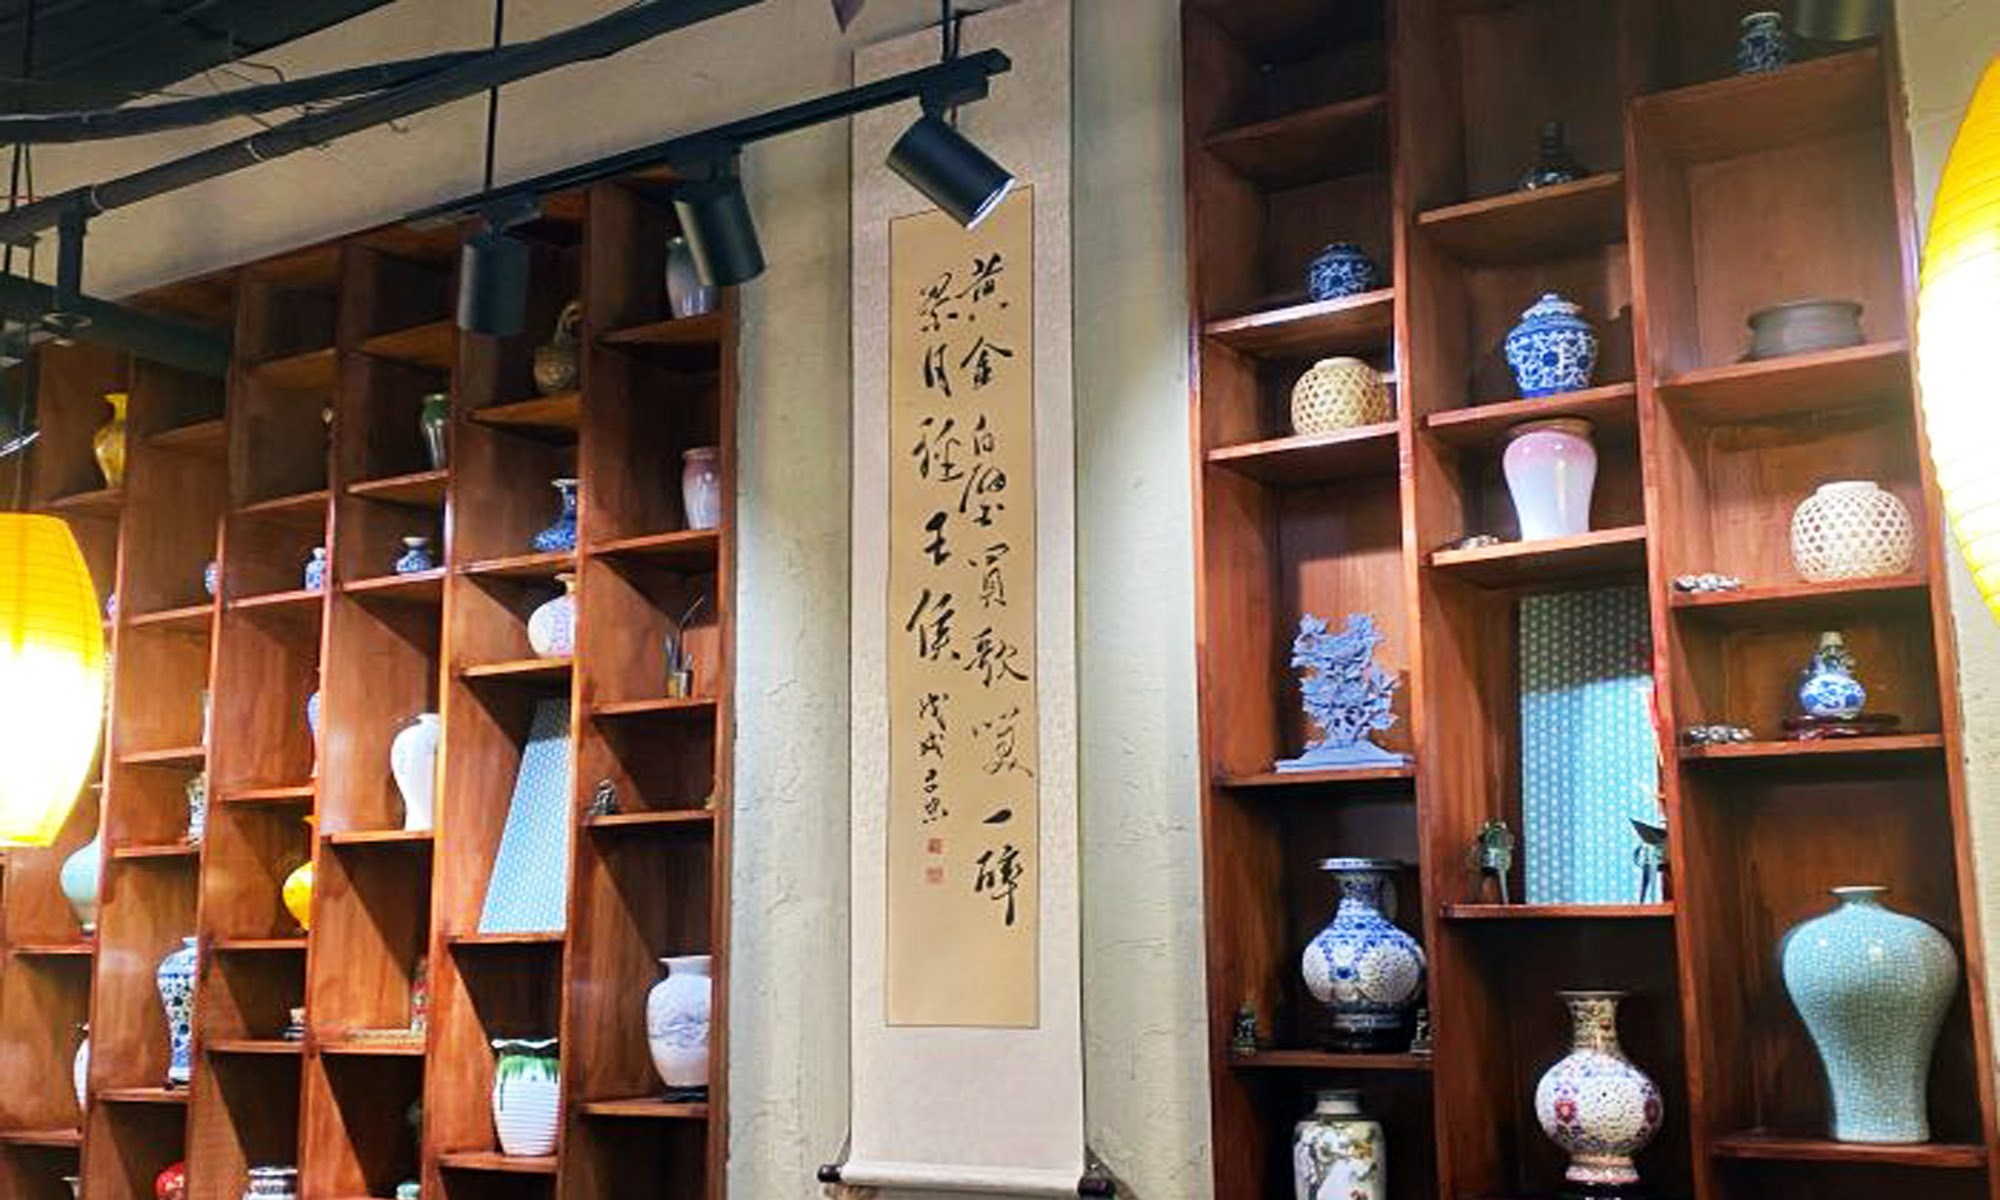 黄金白璧買歌笑一醉
累月輕王侯
戊戌子忠